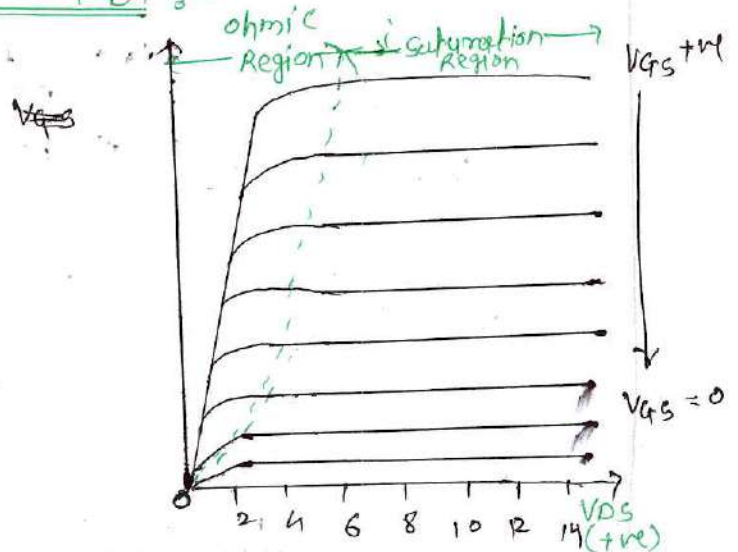 ohmic
Region
Saturation
Region
VGS +ve
VGS
VGS = 0
0
2 4 6 8 10 12 14
VDS
(+ve)